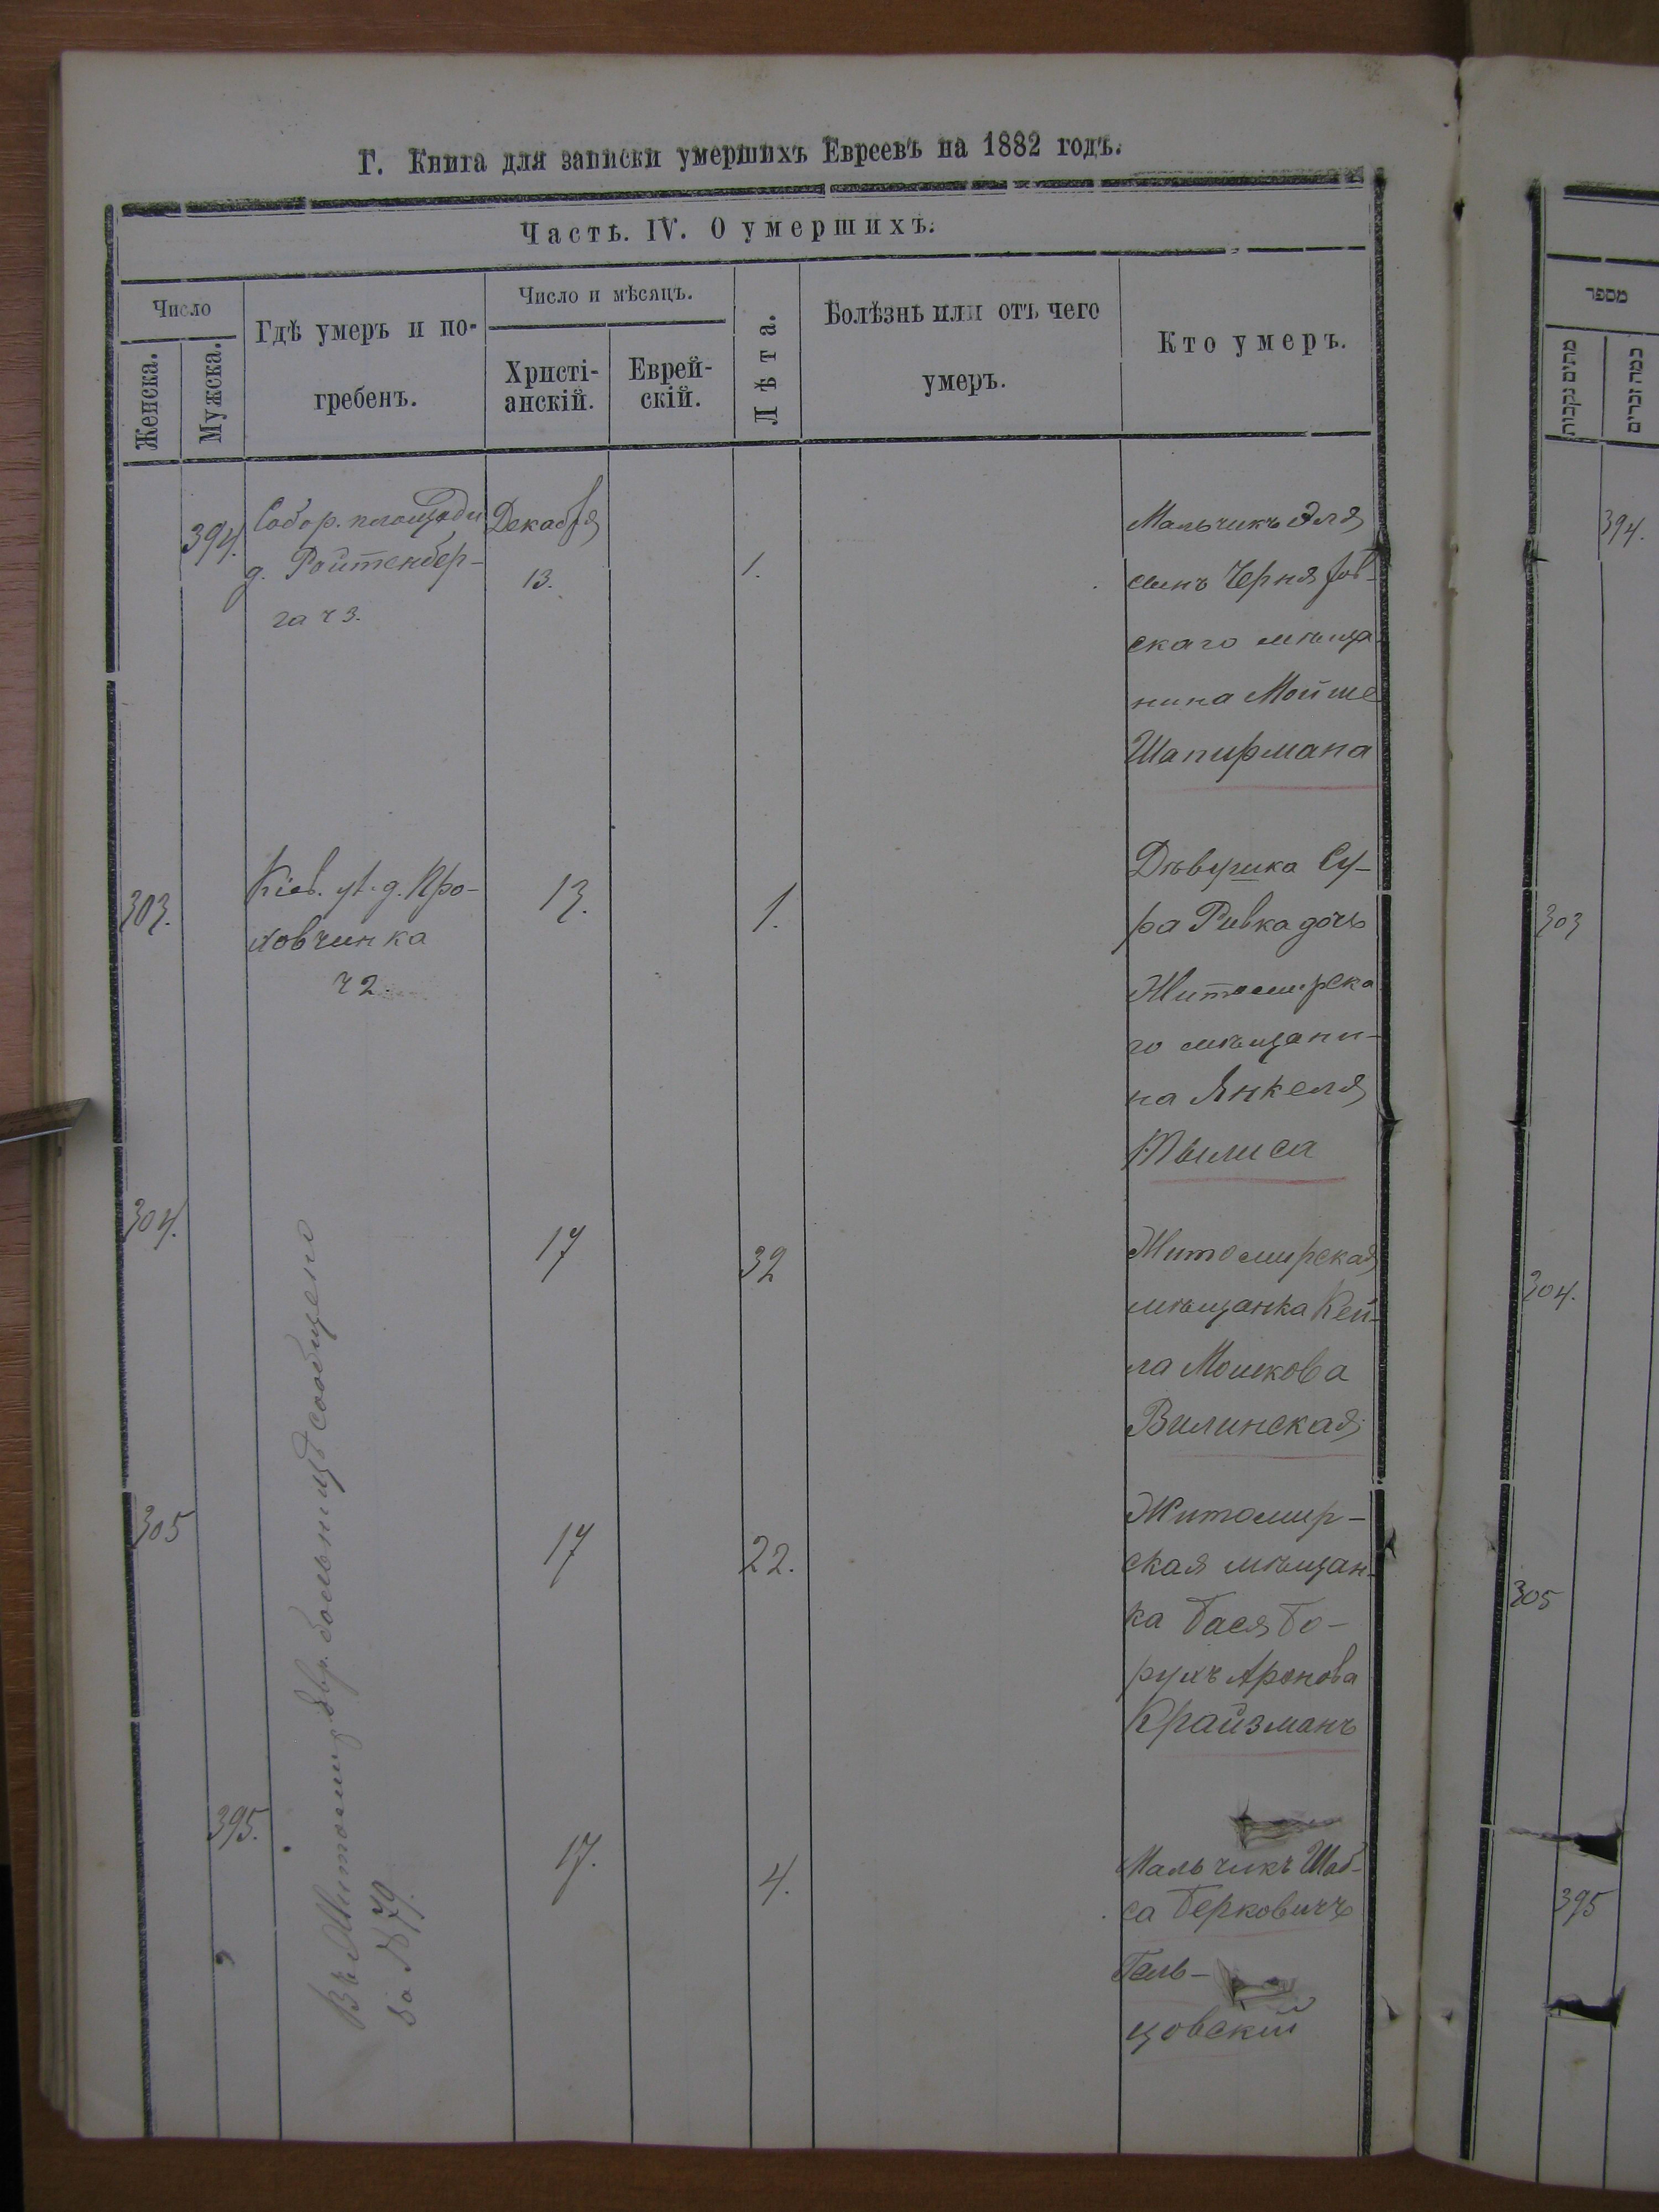 Г. Книга для записки умершихъ Евреевъ на 1882 годъ.
Часть. IV. О умершихъ.
Число
Женска.
Мужска.
Гдѣ умеръ и по-
гребенъ.
Число и мѣсяцъ.
Христі-
анскій.
Еврей-
скій.
Лѣта.
Болѣзнь или отъ чего
умеръ.
Кто умеръ.
394.
Собор. площади
д. Ройтенбер-
га ч 3.
Декабря
13.
1.
Мальчикъ Эля
сынъ Черняхов-
скаго мѣща
нина Мойше
Шапирмана
303.
Кіев. ул. д. Про-
ховчинка
ч 2.
13.
1.
Дѣвушка Су-
ра Ривка дочь
Житомирска
го мѣщани-
на Янкеля
304.
17
32
Житомирская
мѣщанка Кей-
ла Мошкова
Вилинская
305
17
22.
Житомир-
ская мѣщан-
ка Бася Бо-
рухъ Аронова
Крайзманъ
Въ Житомир. Евр. больницѣ сообщено
за № 79.
395.
17.
4.
Мальчикъ Шаб-
са Берковичъ
Гель-
цовскій
מספר
מתים נקבות
כמה זכרים
394.
303
304.
305
395